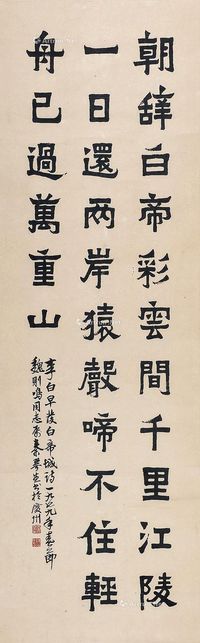 朝辭白帝彩雲間千里江陵
一日還兩岸猿聲啼不住輕
舟已過萬重山
李白早發白帝城詩一九七九年春節
魏則鳴同志屬秦咢生書於廣州